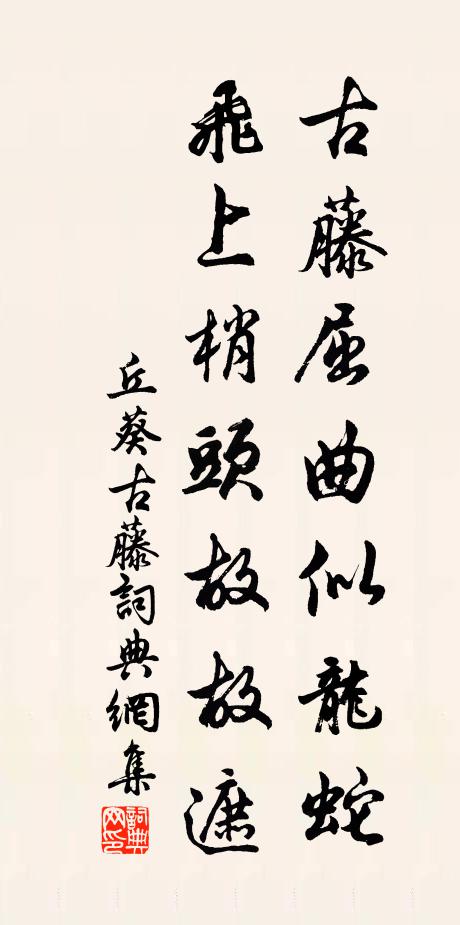 古藤屈曲似龍蛇
飛上梢頭故故遮
丘葵古藤詞典網集
詞典網印